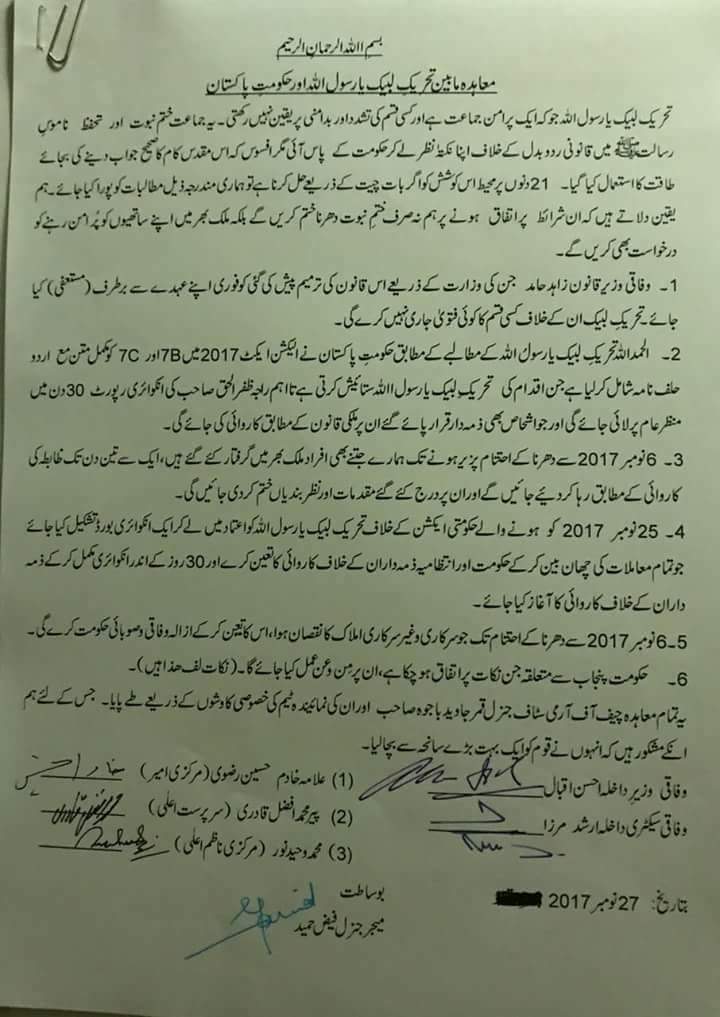 بسم اللہ الرحمان الرحیم
معاہدہ مابین تحریک لبیک یا رسول اللہ اور حکومتِ پاکستان
تحریک لبیک یا رسول اللہ جو کہ ایک پرامن جماعت ہے اور کسی قسم کی تشدد اور بدامنی پر یقین نہیں رکھتی۔ یہ جماعت ختم نبوت اور تحفظ ناموسِ
رسالت ﷺ میں قانونی ردوبدل کے خلاف اپنا نکتۂ نظر لے کر حکومت کے پاس آئی مگر افسوس کہ اس مقدس کام کا صحیح جواب دینے کی بجائے
طاقت کا استعمال کیا گیا۔ 21 دنوں پر محیط اس کوشش کو اگر بات چیت کے ذریعے حل کرنا ہے تو ہماری مندرجہ ذیل مطالبات کو پورا کیا جائے۔ ہم
یقین دلاتے ہیں کہ ان شرائط پر اتفاق ہونے پر ہم نہ صرف ختمِ نبوت دھرنا ختم کریں گے بلکہ ملک بھر میں اپنے ساتھیوں کو پُر امن رہنے کو
درخواست بھی کریں گے۔
1۔ وفاقی وزیر قانون زاہد حامد جن کی وزارت کے ذریعے اس قانون کی ترمیم پیش کی گئی کو فوری اپنے عہدے سے برطرف (مستعفی) کیا
جائے۔ تحریک لبیک ان کے خلاف کسی قسم کا کوئی فتویٰ جاری نہیں کرے گی۔
2۔ الحمداللہ تحریک لبیک یا رسول اللہ کے مطالبے کے مطابق حکومتِ پاکستان نے الیکشن ایکٹ 2017 میں 7B اور 7C کو مکمل متن مع اردو
حلف نامہ شامل کر لیا ہے جن اقدام کی تحریک لبیک یا رسول اللہ ستائیش کرتی ہے تا اہم راجہ ظفر الحق صاحب کی انکوائری رپورٹ 30 دن میں
منظر عام پر لائی جائے گی اور جو اشخاص بھی ذمہ دار قرار پائے گئے ان پر ملکی قانون کے مطابق کاروائی کی جائے گی۔
3۔ 6 نومبر 2017 سے دھرنا کے اختتام پزیر ہونے تک ہمارے جتنے بھی افراد ملک بھر میں گرفتار کئے گئے ہیں، ایک سے تین دن تک ضابطہ کی
کاروائی کے مطابق رہا کر دیئے جائیں گے اور ان پر درج کئے گئے مقدمات اور نظر بندیاں ختم کر دی جائیں گی۔
4۔ 25 نومبر 2017 کو ہونے والے حکومتی ایکشن کے خلاف تحریک لبیک یا رسول اللہ کو اعتماد میں لے کر ایک انکوائری بورڈ تشکیل کیا جائے
جو تمام معاملات کی چھان بین کر کے حکومت اور انتظامیہ ذمہ داران کے خلاف کاروائی کا تعین کرے اور 30 روز کے اندر انکوائری مکمل کر کے ذمہ
داران کے خلاف کاروائی کا آغاز کیا جائے۔
5۔ 6 نومبر 2017 سے دھرنا کے اختتام تک جو سرکاری وغیر سرکاری املاک کا نقصان ہوا، اس کا تعین کر کے ازالہ وفاقی و صوبائی حکومت کرے گی۔
6۔ حکومت پنجاب سے متعلقہ جن نکات پر اتفاق ہو چکا ہے، ان پر من و عن عمل کیا جائے گا۔ (نکات لف ھذا ہیں)۔
یہ تمام معاہدہ چیف آف آرمی سٹاف جنرل قمر جاوید باجوہ صاحب اور ان کی نمائیندہ ٹیم کی خصوصی کاوشوں کے ذریعے طے پایا۔ جس کے لئے ہم
انکے مشکور ہیں کہ انہوں نے قوم کو ایک بہت بڑے سانحہ سے بچا لیا۔
وفاقی وزیر داخلہ احسن اقبال
وفاقی سیکٹری داخلہ ارشد مرزا
(1) علامہ خادم حسین رضوی (مرکزی امیر)
(2) پیر محمد افضل قادری (سرپرست اعلٰی)
(3) محمد وحید نور (مرکزی ناظم اعلٰی)
بتاریخ: 27 نومبر 2017
بوساطت
میجر جنرل فیض حمید